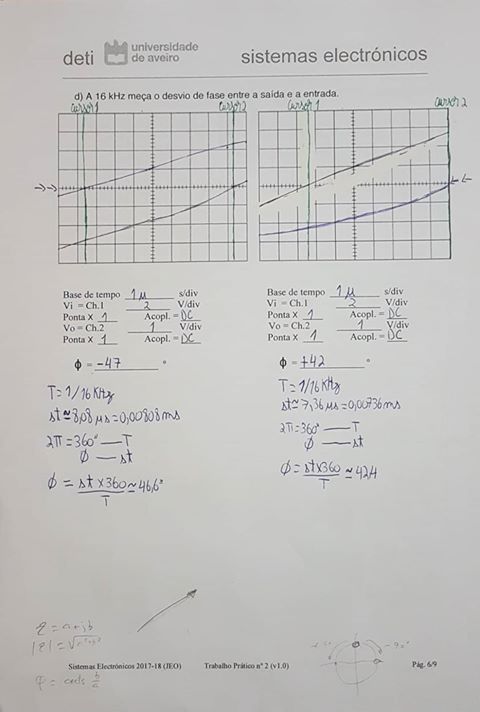 deti universidade de aveiro sistemas electrónicos
d) A 16 kHz meça o desvio de fase entre a saída e a entrada.
cursor 1 cursor 2 cursor 1 cursor 2
Base de tempo 1 μ s/div
Vi = Ch.1 2 V/div
Ponta X 1 Acopl. = DC
Vo = Ch.2 1 V/div
Ponta X 1 Acopl. = DC
ϕ = -47 °
T = 1/16 KHz
st ≃ 8,08 μs = 0,00808 ms
2π = 360° — T
ϕ — st
ϕ = st × 360 / T ≃ 46,6°
Base de tempo 1 μ s/div
Vi = Ch.1 2 V/div
Ponta X 1 Acopl. = DC
Vo = Ch.2 1 V/div
Ponta X 1 Acopl. = DC
ϕ = +42 °
T = 1/16 KHz
st ≃ 7,36 μs = 0,00736 ms
2π = 360° — T
ϕ — st
ϕ = st × 360 / T ≃ 42,4
z = a + jb
|z| = √a²+b²
Sistemas Electrónicos 2017-18 (JEO) Trabalho Prático nº 2 (v1.0) Pág. 6/9